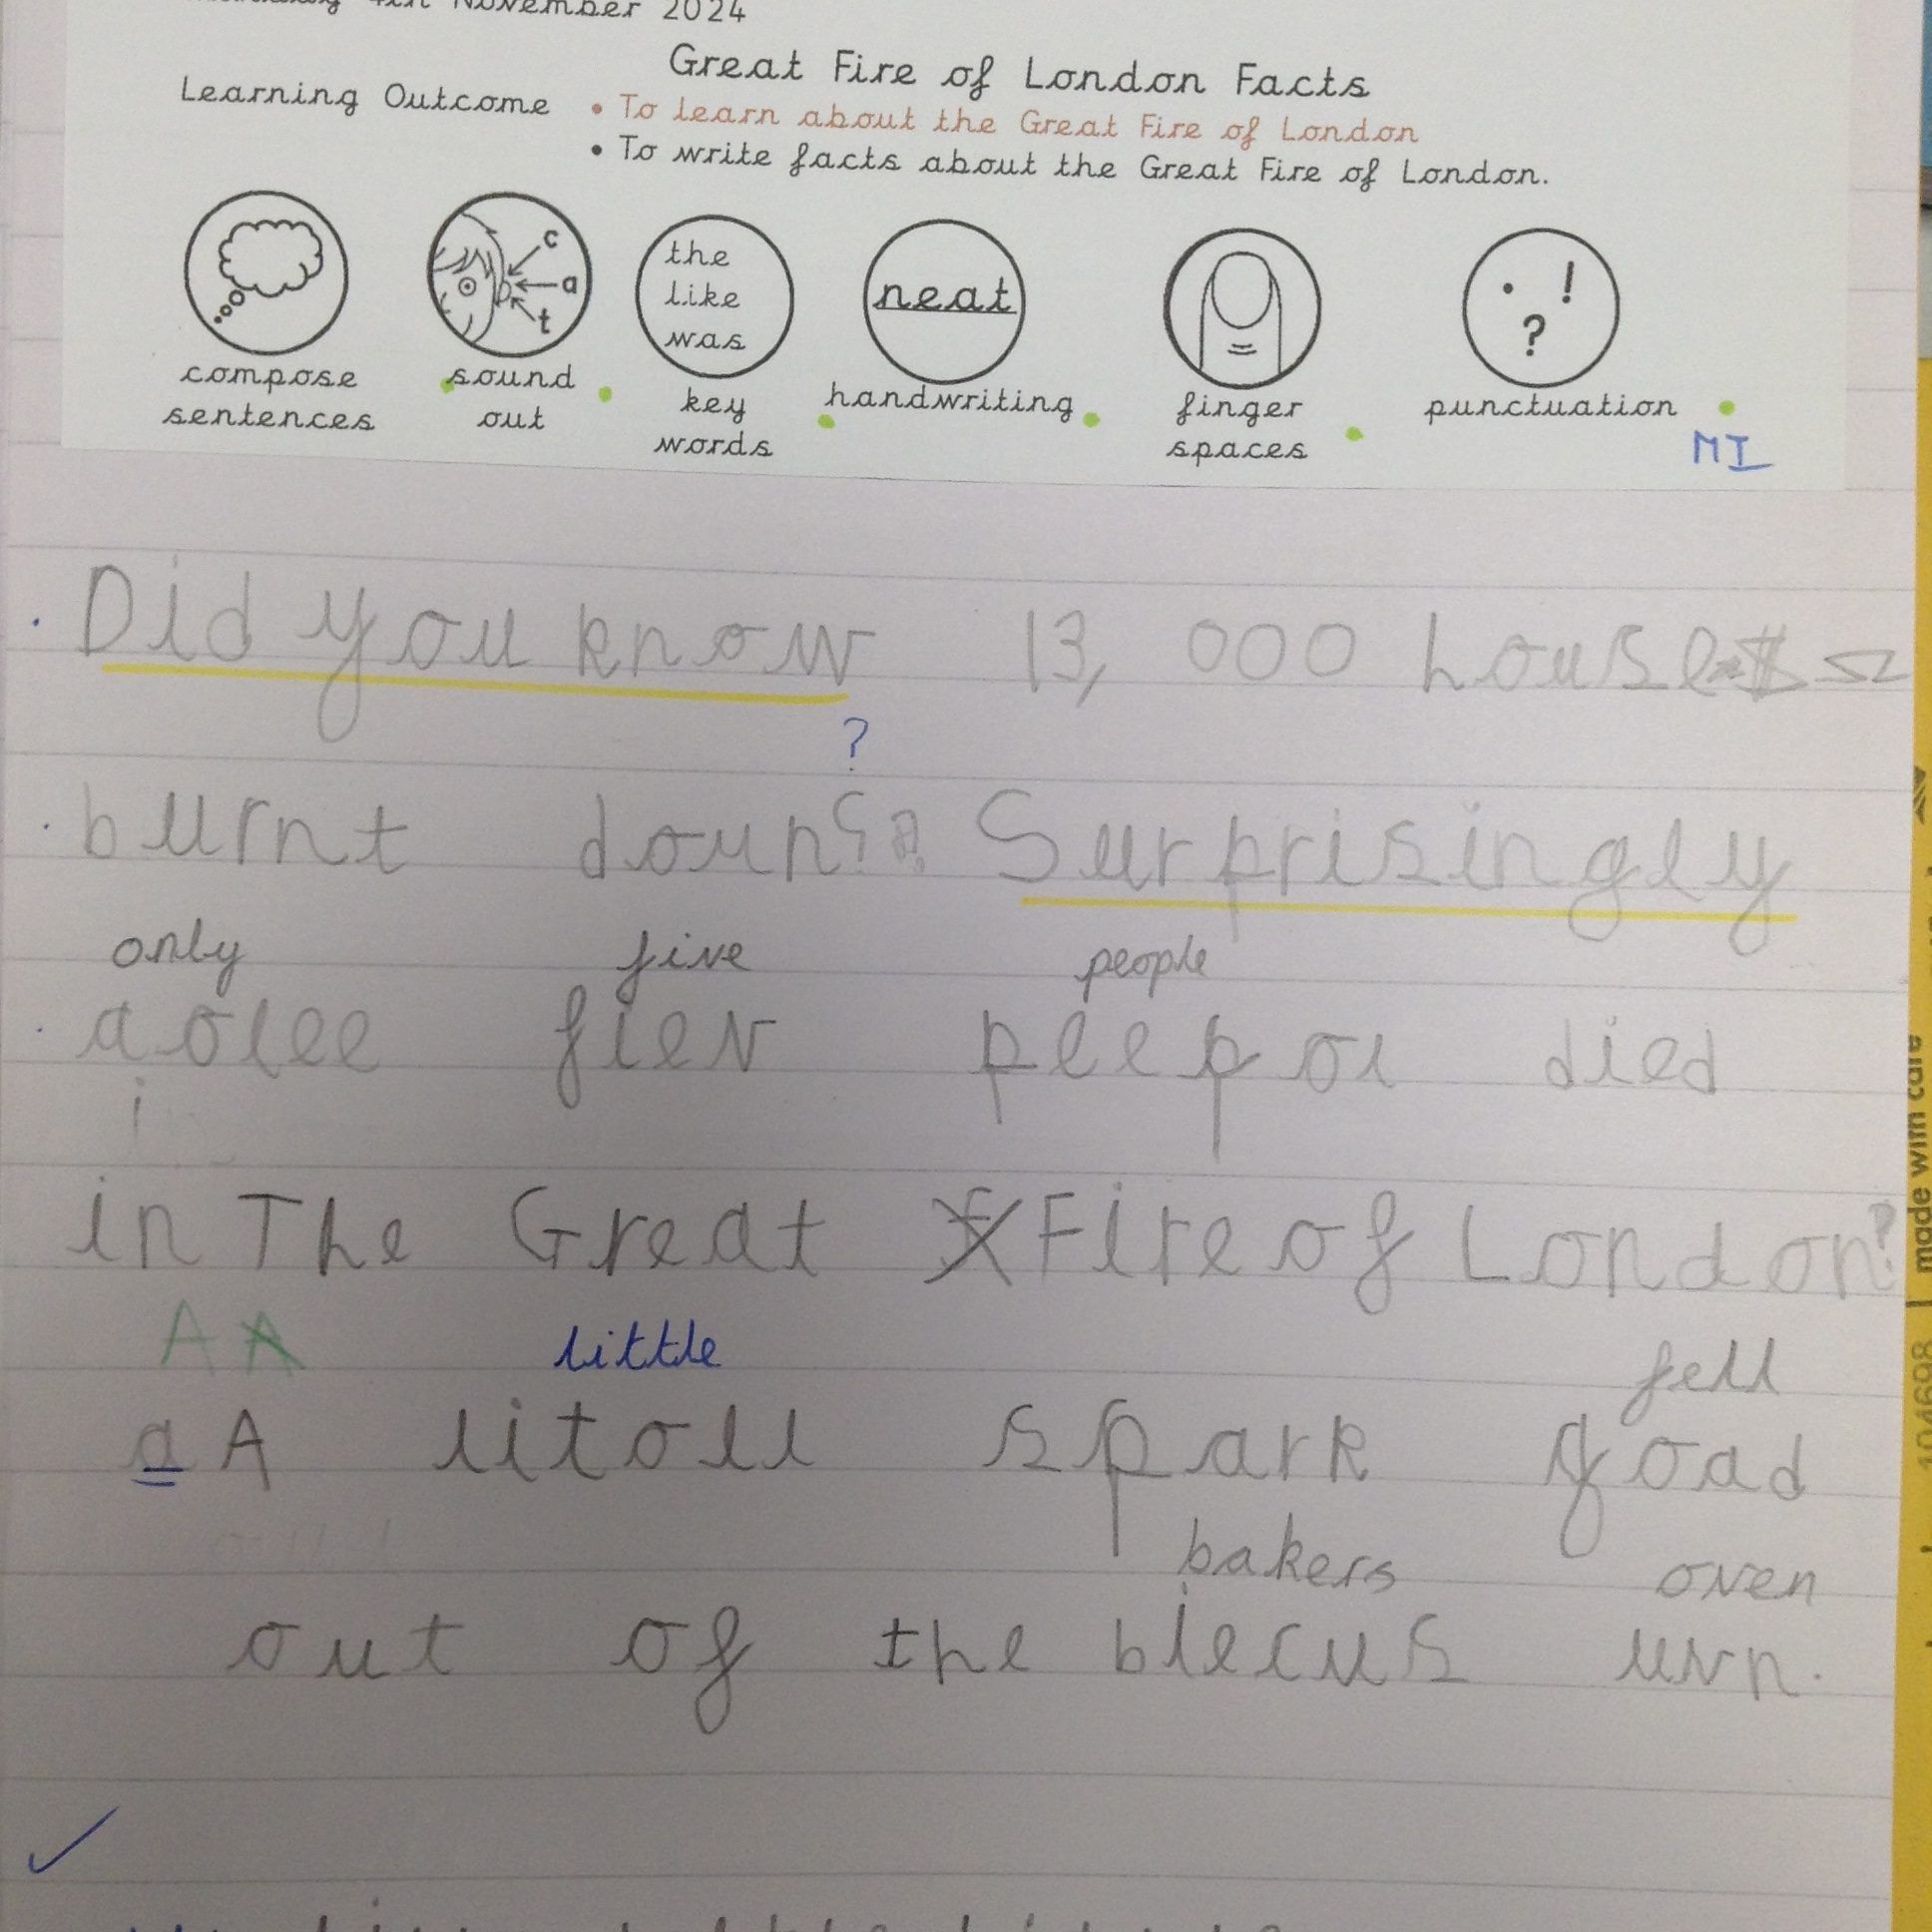 4th November 2024
Great Fire of London Facts
Learning Outcome
• To learn about the Great Fire of London
• To write facts about the Great Fire of London.
c
a
t
the
like
was
neat
. !
?
compose
sentences
sound
out
key
words
handwriting
finger
spaces
punctuation
MI
Did you know 13, 000 houses
?
burnt doun? Surprisingly
only five people
aolee fiev peepol died
i
in The Great Fire of London?
A A
little
fell
a A litoll spark foad
bakers oven
out of the biecus uvn.
made with care
104698